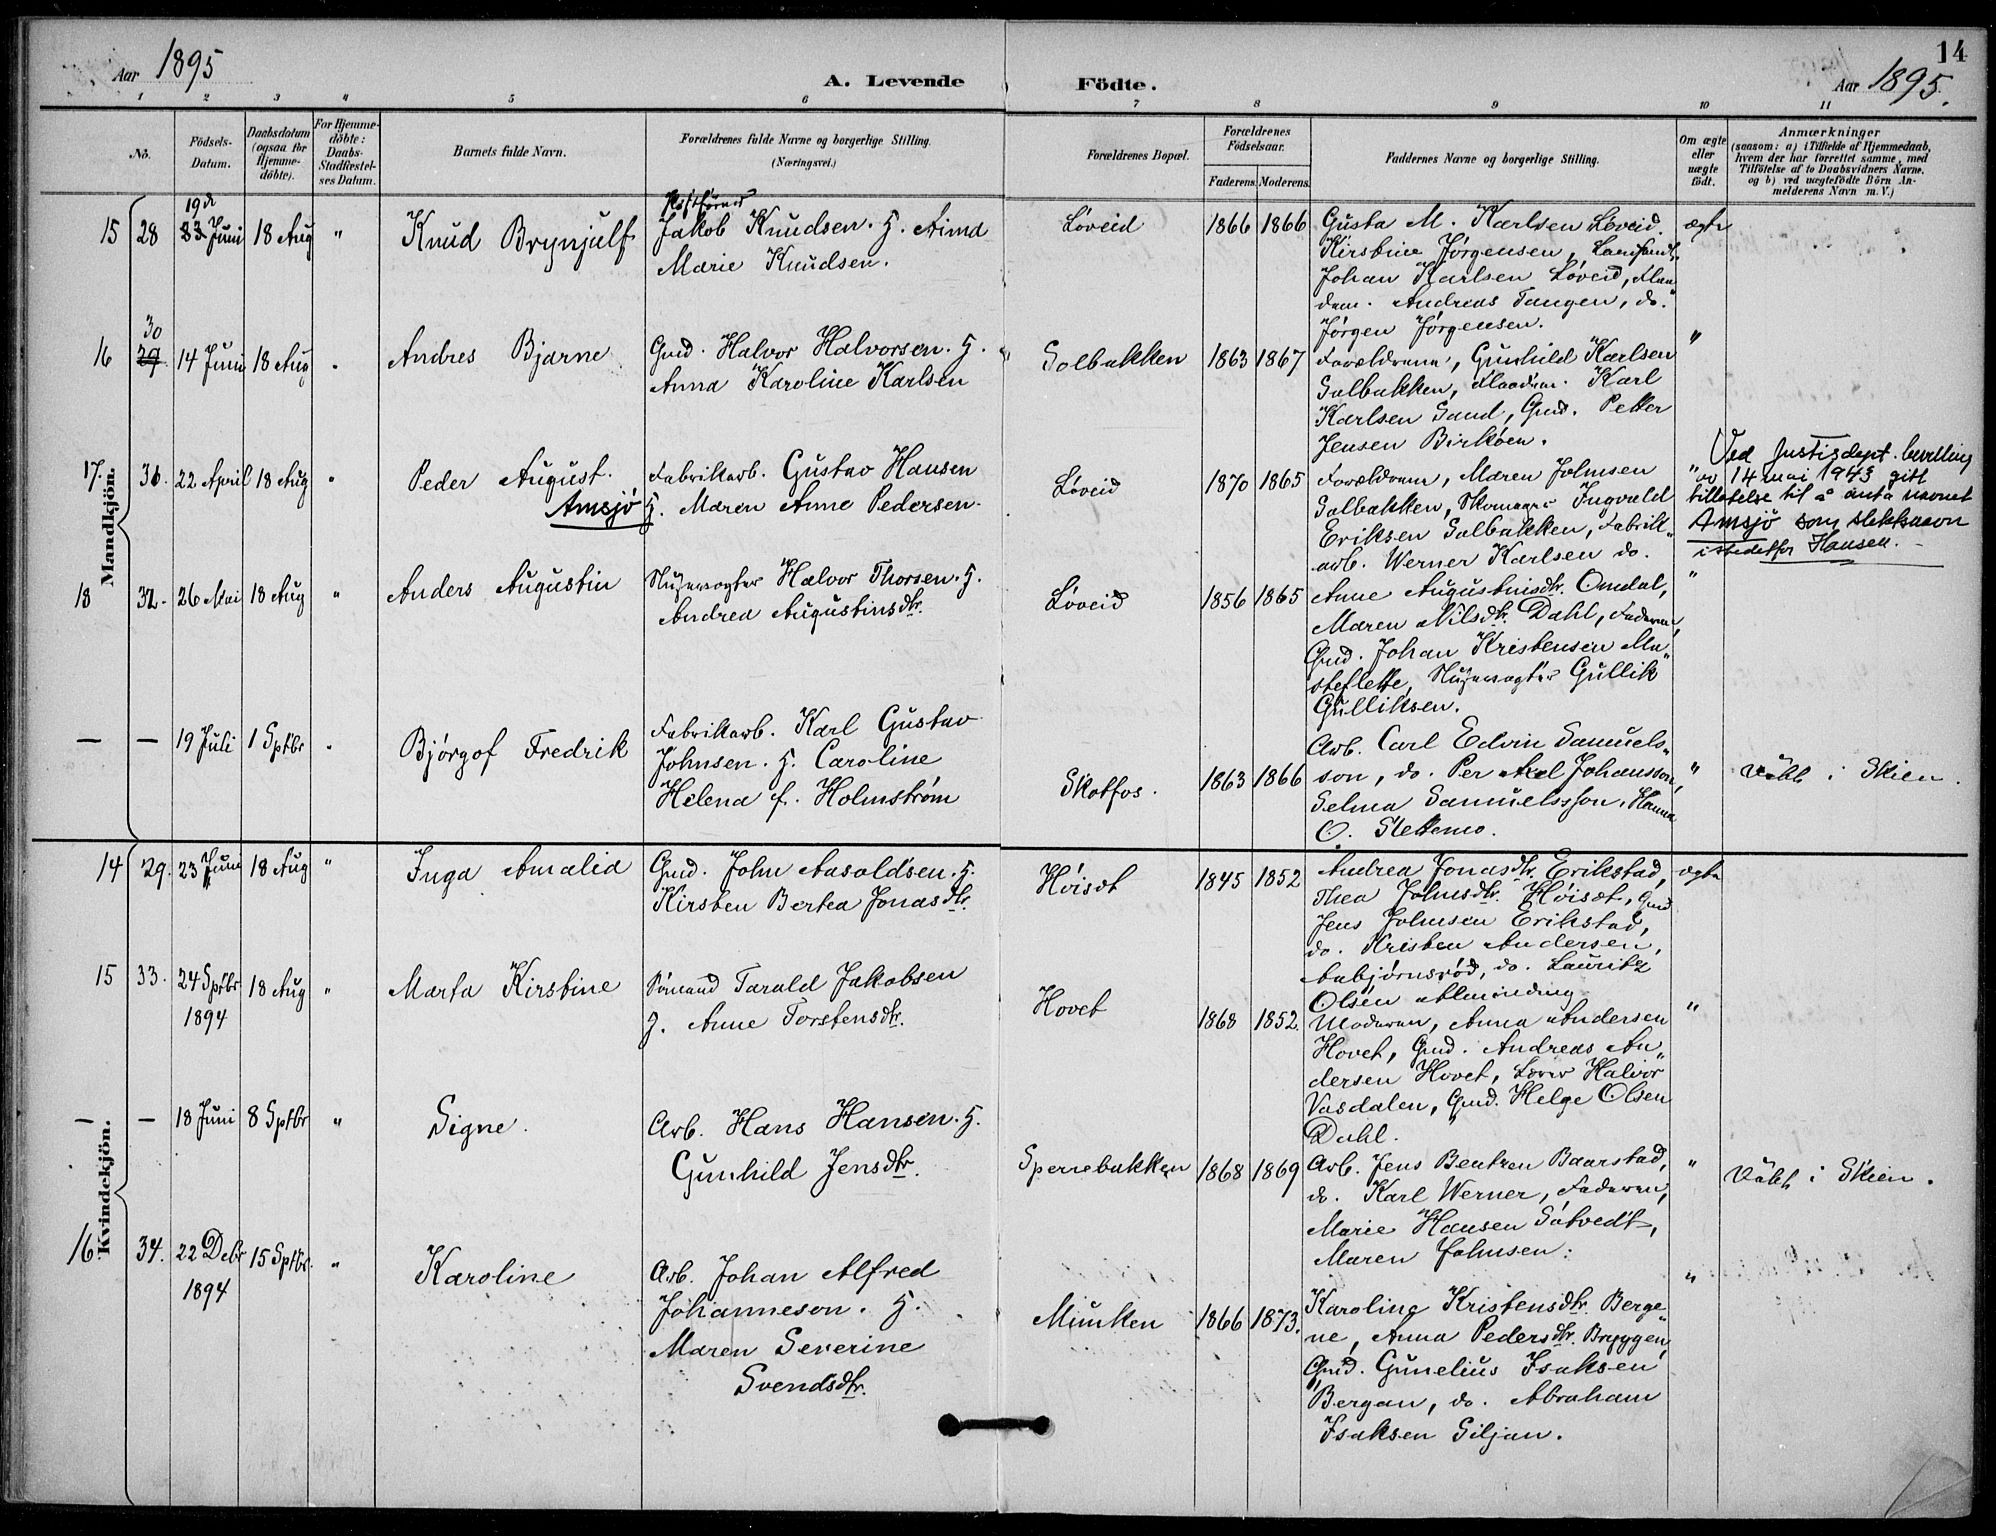 14
Aar 1895
A. Levende Födte.
Aar 1895.
1 2 3 4 5 6 7 8 9 10 11
No.
Födsels-Datum.
Daabsdatum (ogsaa for Hjemmedöbte).
For Hjemmedöbte: Daabs-Stadfæstelses Datum.
Barnets fulde Navn.
Forældrenes fulde Navne og borgerlige Stilling.
(Næringsvei.)
Forældrenes Bopæl.
Forældrenes Födselsaar.
Faderens. Moderens.
Faddernes Navne og borgerlige Stilling.
Om ægte eller uægte födt.
Anmærkninger
(saasom: a) i Tilfælde af Hjemmedaab,
hvem der har forrettet samme, med
Tilföielse af to Daabsvidners Navne,
og b) ved uægtefödte Börn Anmelderens Navn m. V.)
Mandkjön.
15 28 19de 23 Juni 18 Aug " Knud Brynjulf
Jakob Knudsen. H. Aimé
Marie Knudsen.
Løveid 1866 1866
Gusta M. Karlsen Løveid.
Kirstine Jørgensen,
Johan Karlsen Løveid,
Andreas Tangen, do.
Jørgen Jørgensen.
ægte
16 30 29 14 Juni 18 Aug " Andres Bjarne
Gmd. Halvor Halvorsen. H.
Anna Karoline Karlsen
Solbakken 1863 1867
Forældrene, Gunhild Karlsen
Solbakken, Karl
Karlsen Sand, Gmd. Petter
Jensen Birköen.
"
17. 31. 22 April 18 Aug " Peder August.
Amsjø
Fabrikarb. Gustav Hansen
H. Maren Anne Pedersen.
Løveid 1870 1865
Forældrene, Maren Johnsen
Solbakken, Skomager Ingvald
Eriksen Solbakken, Fabrik-
arb. Werner Karlsen do.
"
Ved Justisdept. bevilling
av 14 mai 1943 gitt
tillatelse til å anta navnet
Amsjø som slektsnavn
istedetfor Hansen.
18 32. 26 Mai 18 Aug " Anders Augustin
Slusevogter Halvor Thorsen. H.
Andrea Augustinsdtr.
Løveid 1856 1865
Anne Augustinsdtr. Omdal,
Maren Nilsdtr. Dahl, Faderen,
Gmd. Johan Kristensen Ma-
steflette, Slusevogter Gullik
Gulliksen.
"
— — 19 Juli 1 Sptbr " Bjørgof Fredrik
Fabrikarb. Karl Gustav
Johnsen. H. Caroline
Helena f. Holmstrøm
Skotfos. 1863 1866
Arb. Carl Edvin Samuels-
son, do. Per Axel Johansson,
Selma Samuelsson, Hanna
O. Slettemo.
"
Döbt i Skien.
Kvindekjön.
14 29. 23 Juni 18 Aug " Inga Amalia
Gmd. John Aasoldsen. H.
Kirsten Bertea Jonasdtr.
Høisæt 1845 1852
Andrea Jonasdtr. Erikstad,
Thea Johnsdtr. Høisæt, Gmd
Jens Johnsen Erikstad,
do. Kristen Andersen,
Aabjørnsrød, do. Lauritz
Olsen Almending
ægte
15 33. 24 Sptbr 1894 18 Aug " Marta Kirstine
Sømand Tarald Jakobsen
H. Anne Torstensdtr.
Hovet 1868 1852.
Moderen, Anna Andersen
Hovet, Gmd. Andreas An-
dersen Hovet, Lærer Halvor
Vasdalen, Gmd. Helge Olsen
Dahl.
"
— — 18 Juni 8 Sptbr " Signe.
Arb. Hans Hansen. H.
Gunhild Jensdtr.
Sperrebakken 1868 1869
Arb. Jens Bentzen Baarstad,
do. Karl Werner, Faderen,
Marie Hansen Sötvedt,
Maren Johnsen.
"
Döbt i Skien.
16 34. 22 Debr 1894 15 Sptbr. " Karoline
Arb. Johan Alfred
Johanneson. H.
Maren Severine
Svendsdtr.
Munken 1866 1873.
Karoline Kristensdtr. Berge-
ne, Anna Pedersdtr. Bryggen,
Gmd. Gunelius Isaksen
Bergan, do. Abraham
Isaksen Siljan.
"